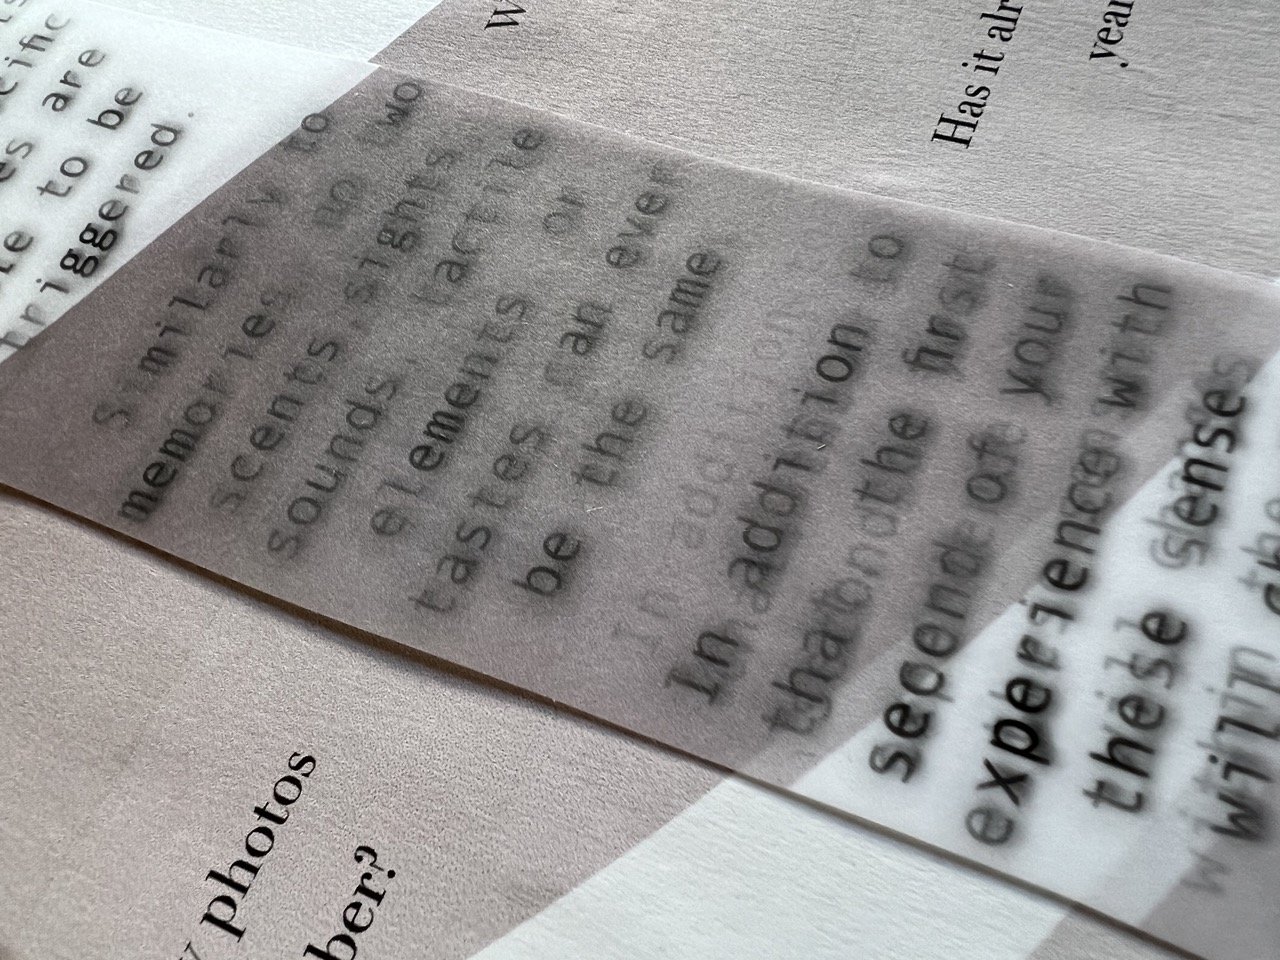 cific
es are
to be
triggered.
W
Has it alr
year
Similarly to
memories no two
scents, sights
sounds, tactile
elements or
tastes can ever
be the same
In addition to
that on the first
second of your
experience with
these senses
will
photos
ber?